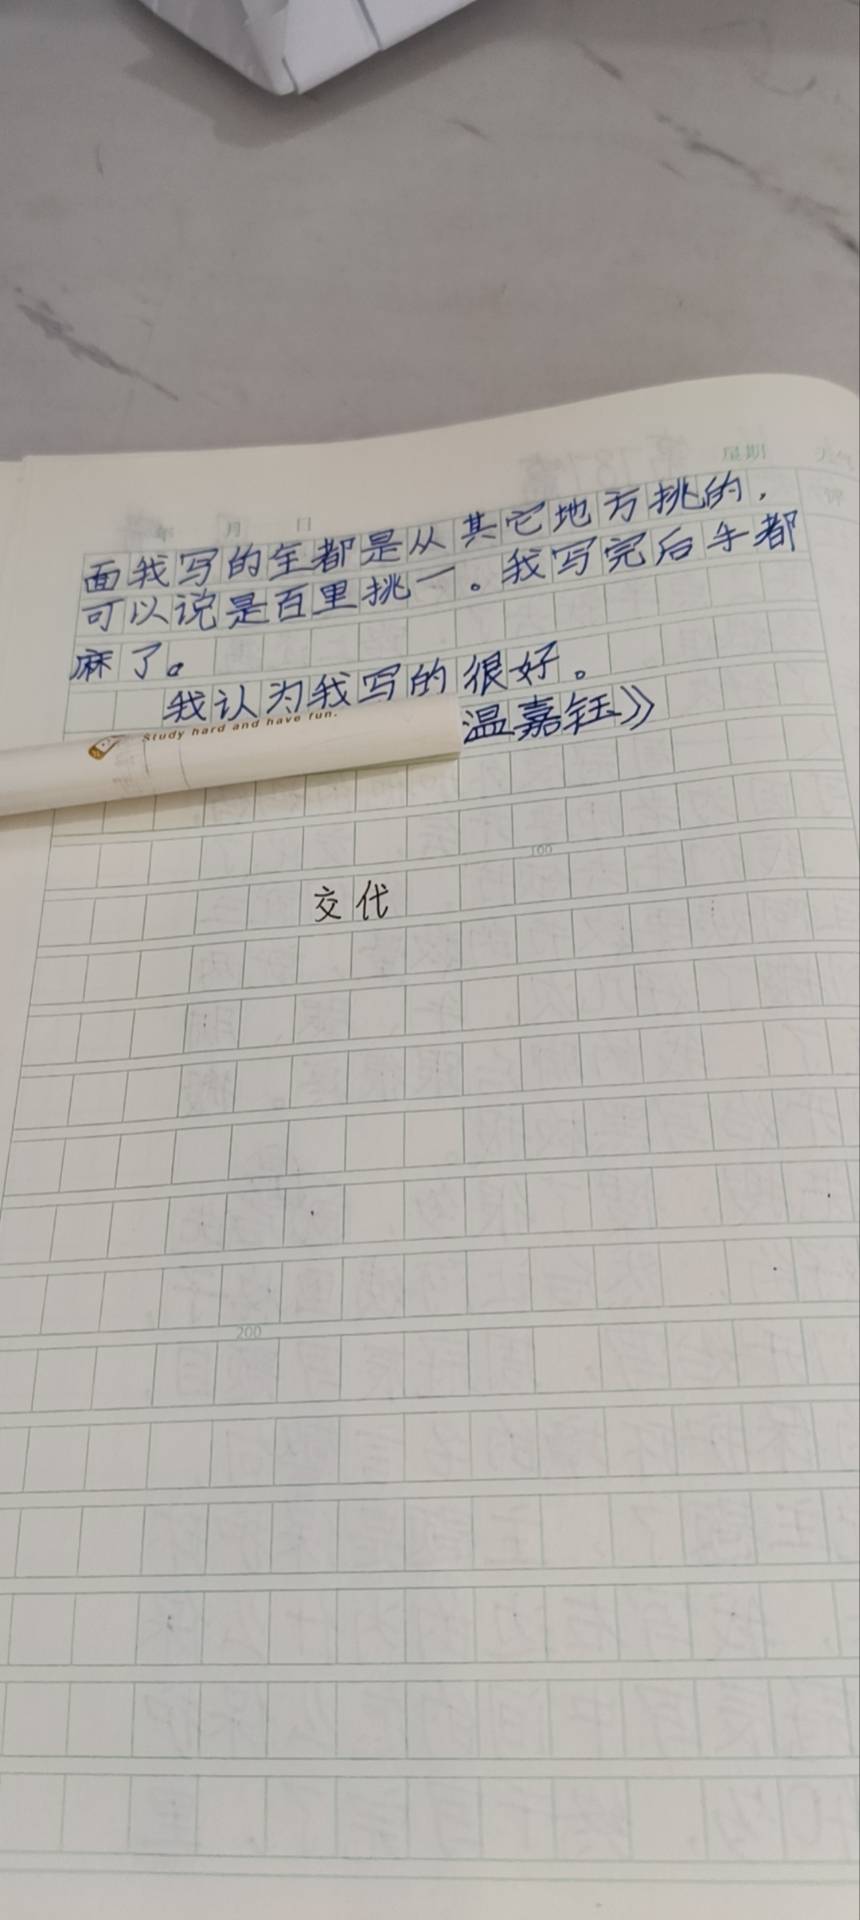 星期
年 月 日
面我写的全都是从其它地方挑的，
可以说是百里挑一。我写完后手都
麻了。
我认为我写的很好。
Study hard and have fun.
温嘉钰》
100
交代
200